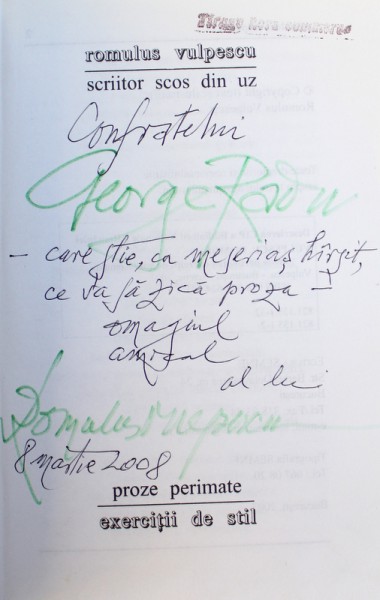 Tiraj hors commerce
romulus vulpescu
scriitor scos din uz
Confratelui
George Radu
– care știe, ca meseriaș hîrșit,
ce va să zică proza –
omagiul
amical
al lui
Romulus Vulpescu
8 martie 2008
proze perimate
exerciții de stil